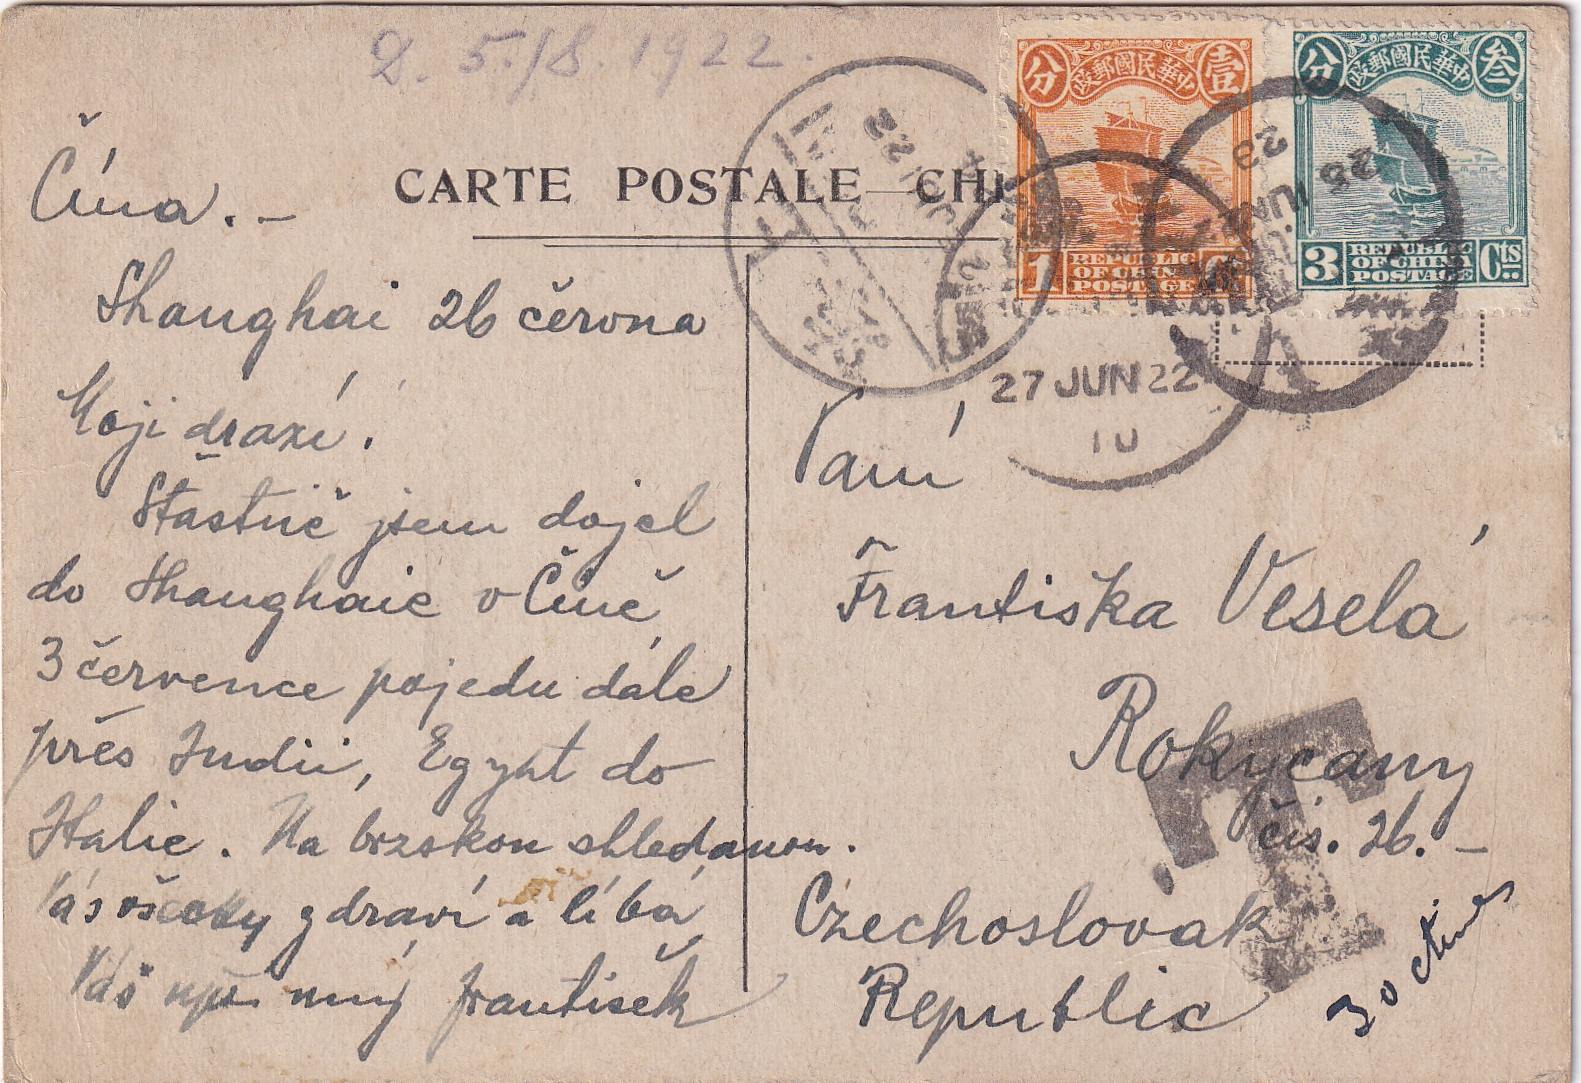 D. 5./8. 1922.
CARTE POSTALE
Čína. –
Shanghai 26 června
Moji drazí.
Štastně jsem dojel
do Shanghaie v Číně,
3 července pojedu dále
přes Indii, Egypt do
Italie. Na brzskou shledanou.
Vás všecky zdraví a líbá
Váš František
中華民國郵政
壹
分
1
REPUBLIC
OF CHINA
POSTAGE
中華民國郵政
叁
分
3
Cts
REPUBLIC
OF CHINA
POSTAGE
27 JUN 22
10
Paní
Františka Veselá
Rokycany
čís. 26. –
Czechoslovak
Republic
T